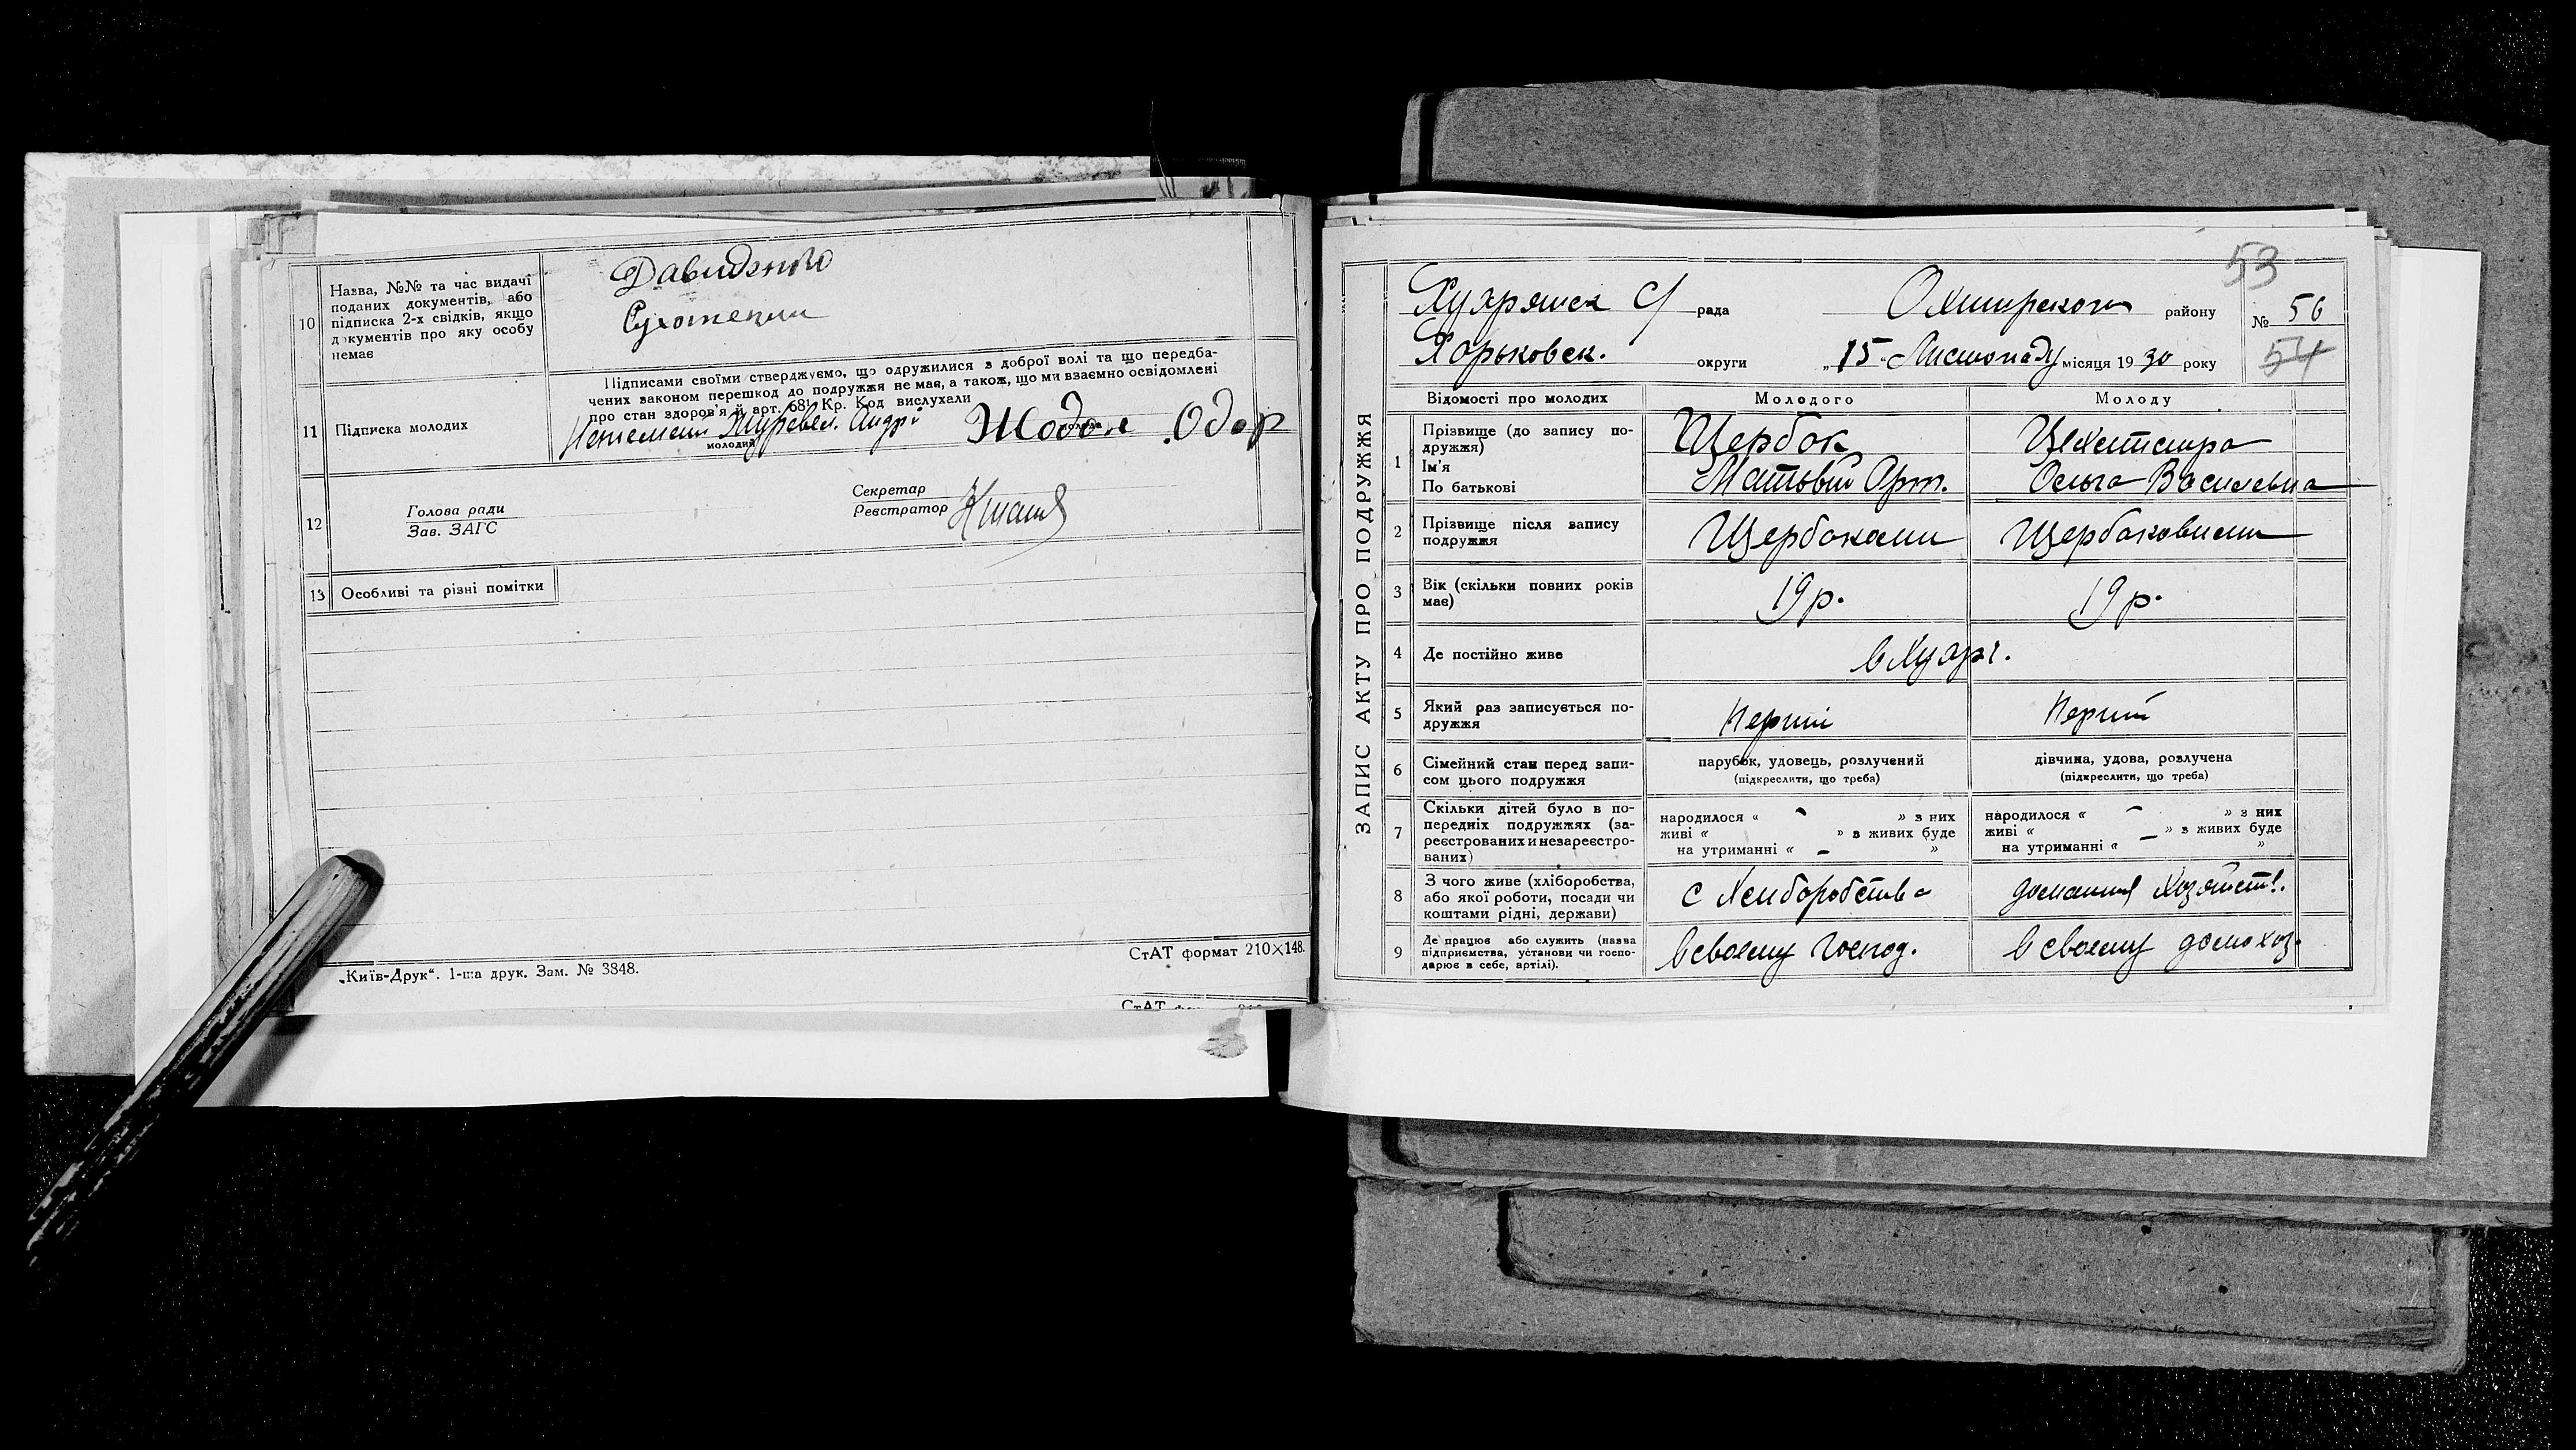 10
Назва, №№ та час видачі
поданих документів, або
підписка 2-х свідків, якщо
документів про яку особу
немає
Давиденко
11
Підписка молодих
Підписами своїми стверджуємо, що одружилися з доброї волі та що передба-
чених законом перешкод до подружжя не має, а також, що ми взаємно освідомлені
про стан здоров'я й арт. 68¹ Кр. Код вислухали
Андрі
Жодан Одар
молодий
12
Голова ради
Зав. ЗАГС
Секретар
Реєстратор
13
Особливі та різні помітки
СтАТ формат 210×148.
„Київ-Друк“. 1-ша друк. Зам. № 3848.
СтАТ
ЗАПИС АКТУ ПРО ПОДРУЖЖЯ
53
Хухрянск С/ рада
Охтирского району
№ 56
Харьковск. округи
„15“ Листопаду місяця 1930 року
54
Відомості про молодих
Молодого
Молоду
1
Прізвище (до запису по-
дружжя)
Ім'я
По батькові
Щербак
Матьвій Арт.
Ольга Василевна
2
Прізвище після запису
подружжя
Щербаками
Щербаковими
3
Вік (скільки повних років
має)
19 р.
19 р.
4
Де постійно живе
в Хухрі.
5
Який раз записується по-
дружжя
Перший
Перший
6
Сімейний стан перед запи-
сом цього подружжя
парубок, удовець, розлучений
(підкреслити, що треба)
дівчина, удова, розлучена
(підкреслити, що треба)
7
Скільки дітей було в по-
передніх подружжях (за-
реєстрованих и незареєстро-
ваних)
народилося « - » з них
живі « » з живих буде
на утриманні « - »
народилося « - » з них
живі « - » з живих буде
на утриманні « »
8
З чого живе (хліборобства,
або якої роботи, посади чи
коштами рідні, держави)
с Хлиборобства
домашня Хозяйст.
9
Де працює або служить (назва
підприємства, установи чи госпо-
дарює в себе, артілі).
в своєму господ.
в своєму домохоз.